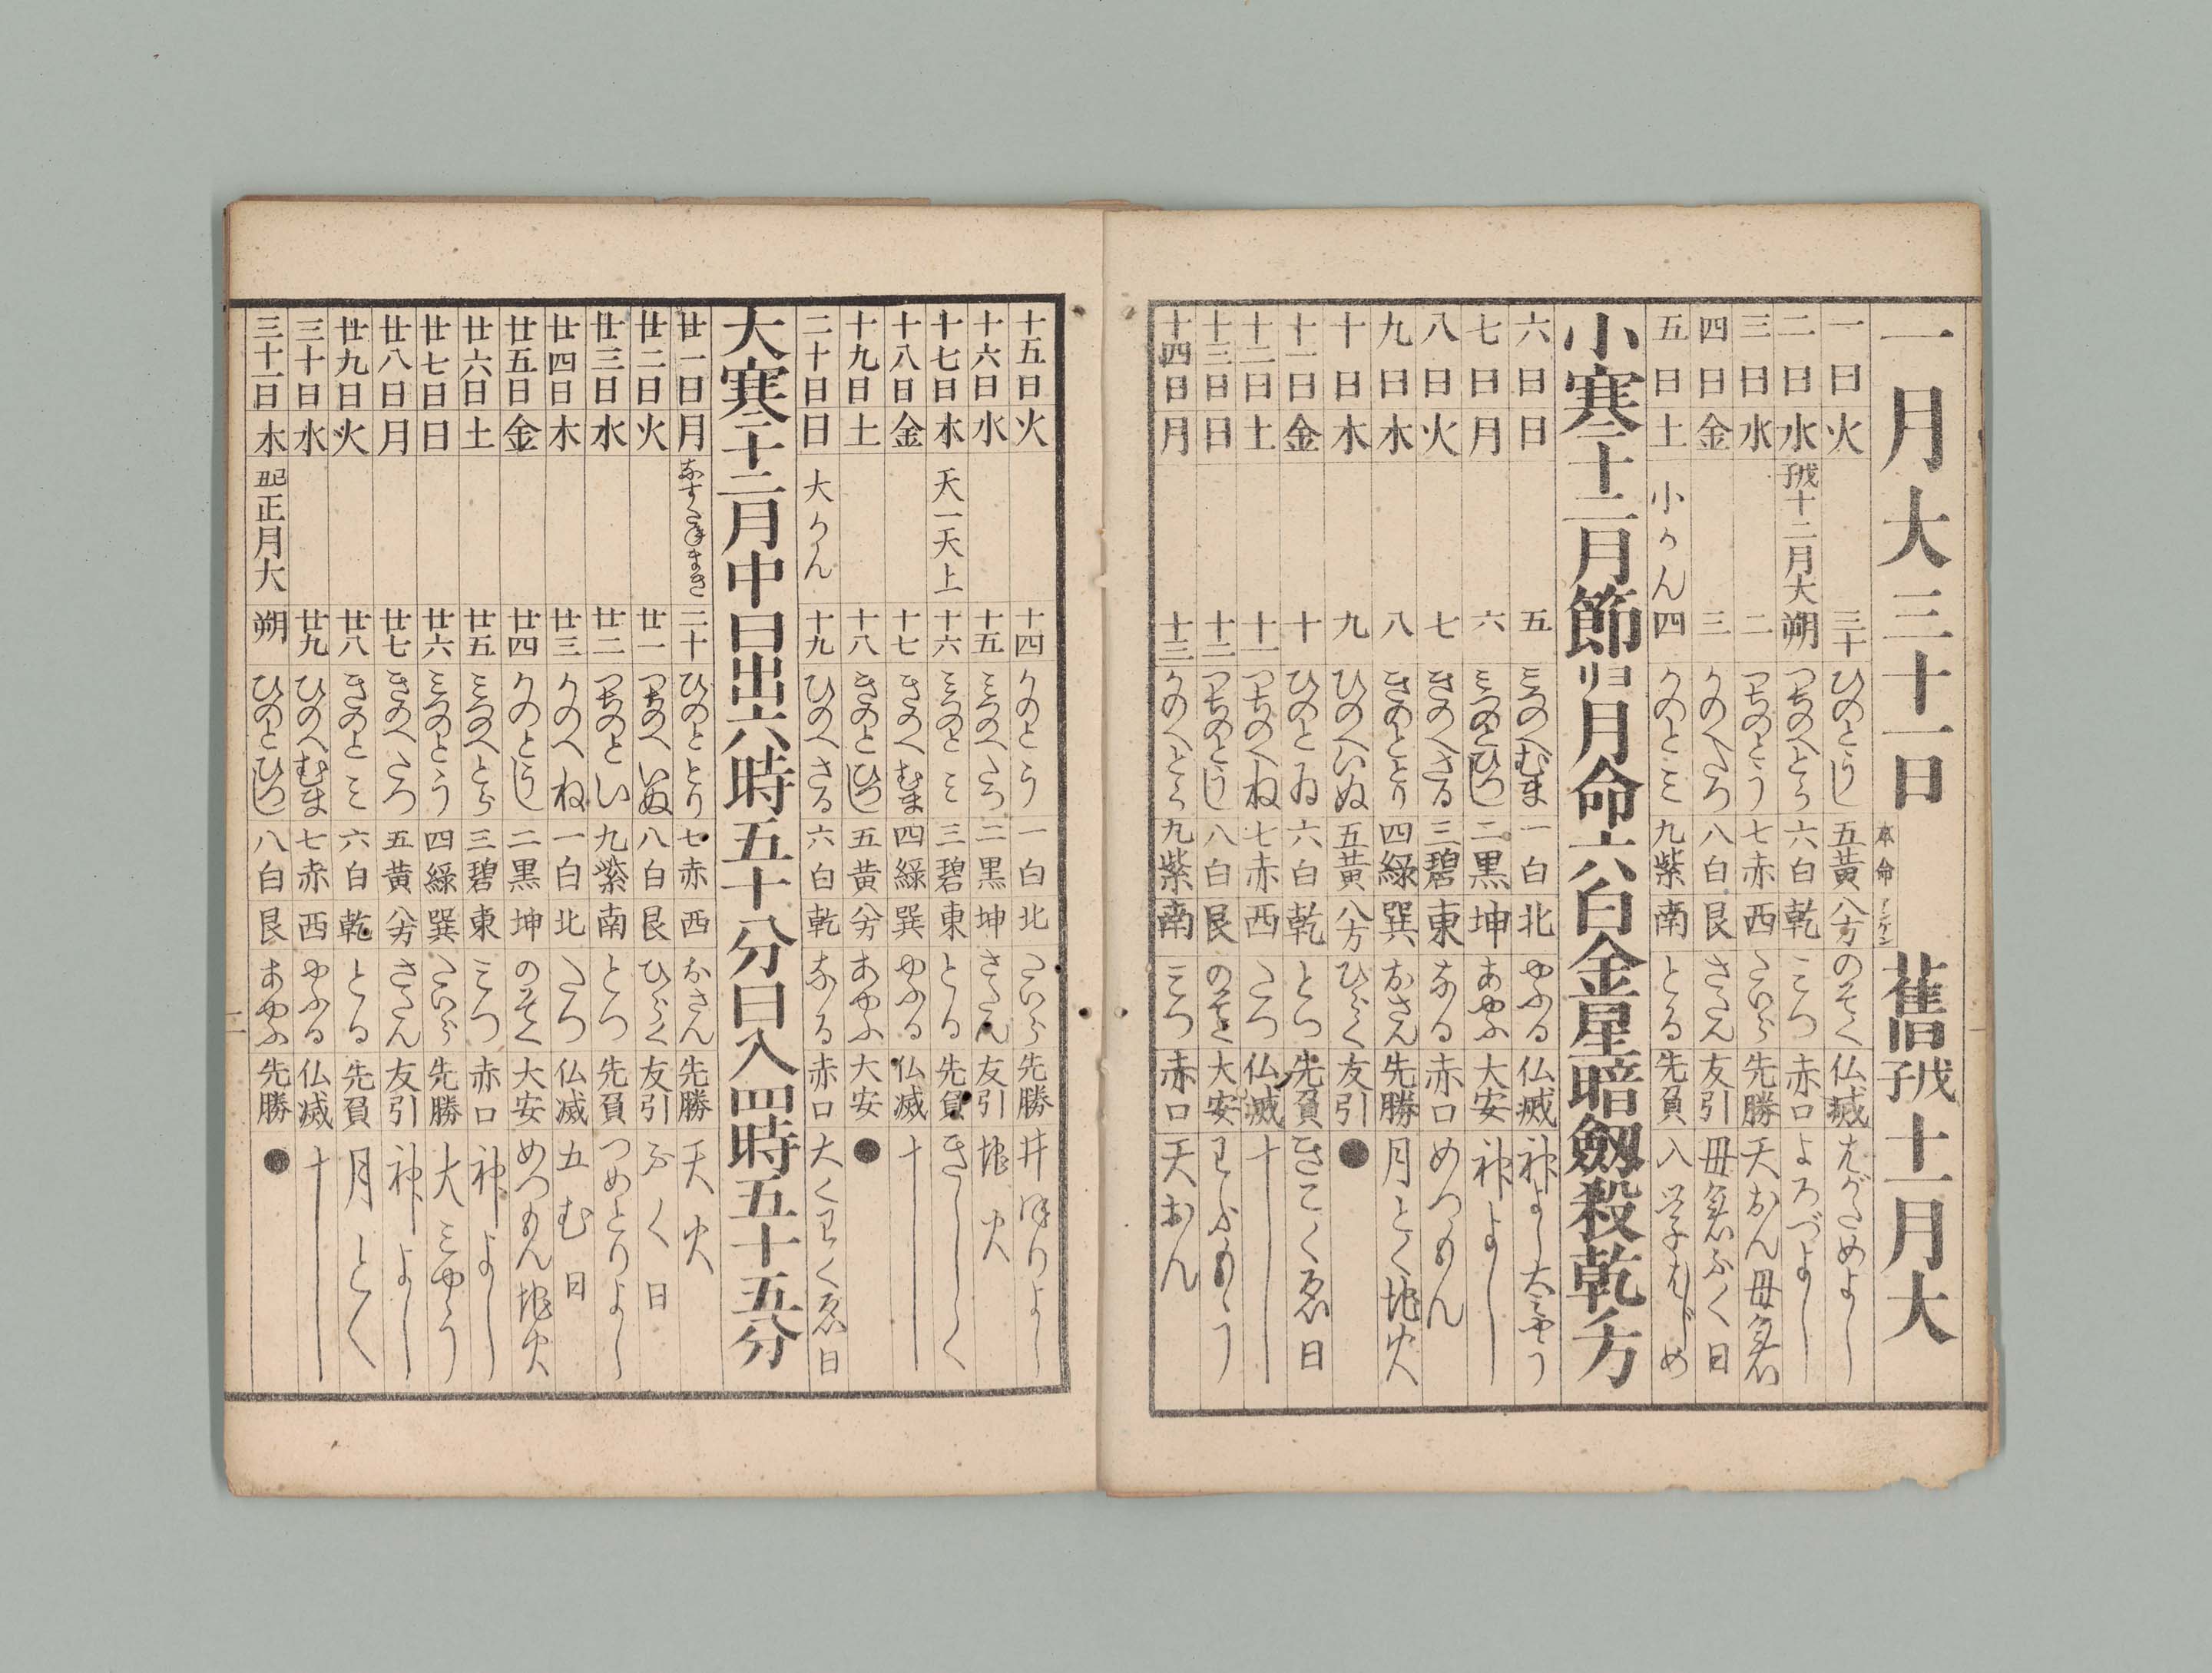 一月大三十一日 本命アンケン 舊戊子十一月大
一日 火 三十 ひのとうし 五黄 八方 のそく 仏滅 はがためよし
二日 水 戊子十二月大 朔 つちのへとら 六白 乾 みつ 赤口 よろづよし
三日 木 二 つちのとう 七赤 西 たいら 先勝 天おん母倉
四日 金 三 かのへたつ 八白 艮 さたん 友引 母倉ふく日
五日 土 小かん 四 かのとミ 九紫 南 とる 先負 入学はじめ
小寒十二月節ヨリ月命六白金星暗劔殺乾ノ方
六日 日 五 ミつのへむま 一白 北 やふる 仏滅 神よし大ミやう
七日 月 六 ミつのとひつし 二黒 坤 あやふ 大安 神よし
八日 火 七 きのへさる 三碧 東 なる 赤口 めつもん
九日 水 八 きのととり 四緑 巽 おさん 先勝 月とく地火
十日 木 九 ひのへいぬ 五黄 八方 ひらく 友引 ●
十一日 金 十 ひのとゐ 六白 乾 とつ 先負
十二日 土 十一 つちのへね 七赤 西 たつ 仏滅 十し
十三日 日 十二 つちのとうし 八白 艮 のそく 大安
十四日 月 十三 かのへとら 九紫 南 ミつ 赤口 天おん
十五日 火 十四 かのとう 一白 北 たいら 先勝 井ほりよし
十六日 水 十五 ミつのへたつ 二黒 坤 さたん 友引 地火
十七日 木 天一天上 十六 ミつのとミ 三碧 東 とる 先負
十八日 金 十七 きのへむま 四緑 巽 やふる 仏滅 十し
十九日 土 十八 きのとひつし 五黄 八方 あやふ 大安 ●
二十日 日 大かん 十九 ひのへさる 六白 乾 なる 赤口
大寒十二月中日出六時五十八分日入四時五十五分
廿一日 月 なすたねまき 二十 ひのととり 七赤 西 おさん 先勝 天火
廿二日 火 廿一 つちのへいぬ 八白 艮 ひらく 友引 ふく日
廿三日 水 廿二 つちのとい 九紫 南 とつ 先負 つめとりよし
廿四日 木 廿三 かのへね 一白 北 たつ 仏滅 五む日
廿五日 金 廿四 かのとうし 二黒 坤 のそく 大安 めつもん地火
廿六日 土 廿五 ミつのへとら 三碧 東 ミつ 赤口 神よし
廿七日 日 廿六 ミつのとう 四緑 巽 たいら 先勝 大ミやう
廿八日 月 廿七 きのへたつ 五黄 八方 さたん 友引 神よし
廿九日 火 廿八 きのとミ 六白 乾 とる 先負 月とく
三十日 水 廿九 ひのへむま 七赤 西 やふる 仏滅 十し
三十一日 木 己丑正月大 朔 ひのとひつし 八白 艮 あやふ 先勝 ●
二